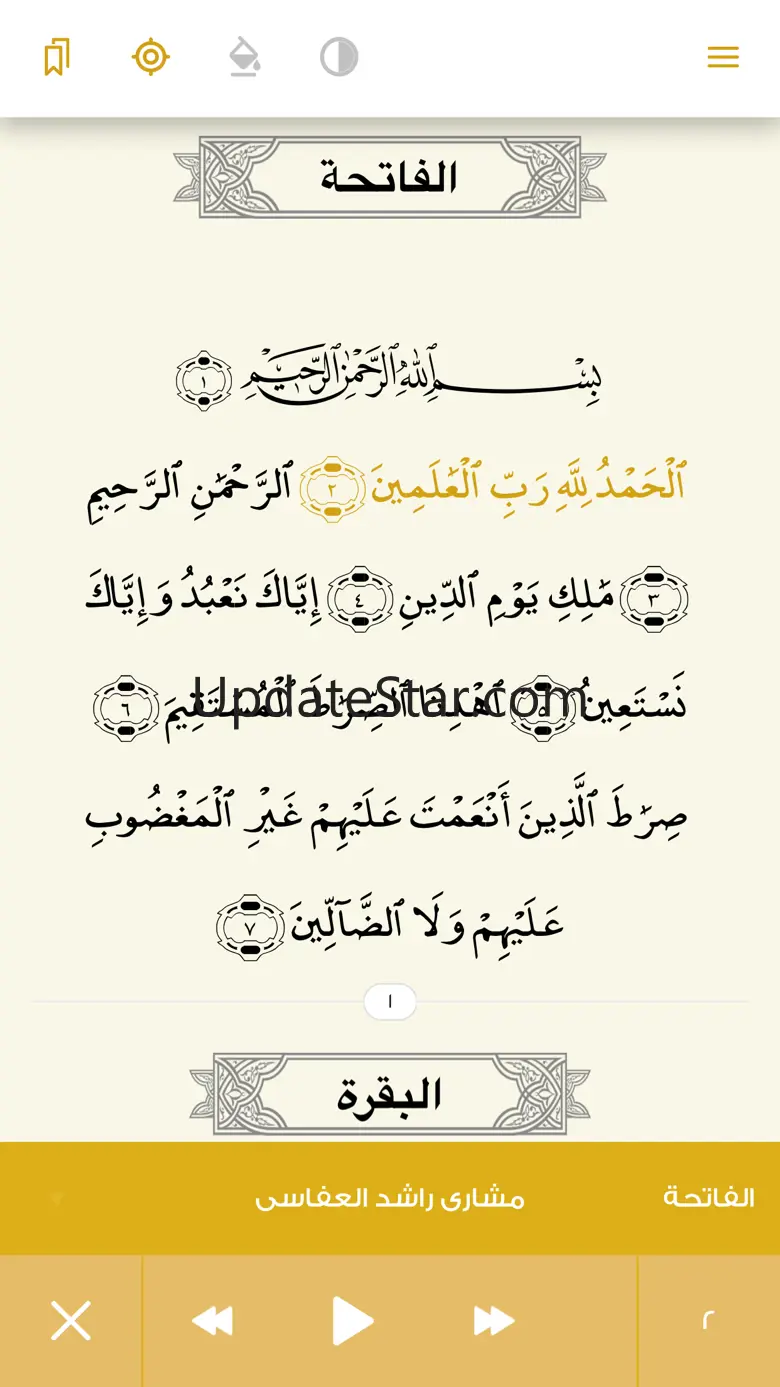 الفاتحة
بِسْمِ ٱللَّهِ ٱلرَّحْمَٰنِ ٱلرَّحِيمِ ١
ٱلْحَمْدُ لِلَّهِ رَبِّ ٱلْعَٰلَمِينَ ٢ ٱلرَّحْمَٰنِ ٱلرَّحِيمِ
٣ مَٰلِكِ يَوْمِ ٱلدِّينِ ٤ إِيَّاكَ نَعْبُدُ وَإِيَّاكَ
نَسْتَعِينُ ٥ ٱهْدِنَا ٱلصِّرَٰطَ ٱلْمُسْتَقِيمَ ٦
UpdateStar.com
صِرَٰطَ ٱلَّذِينَ أَنْعَمْتَ عَلَيْهِمْ غَيْرِ ٱلْمَغْضُوبِ
عَلَيْهِمْ وَلَا ٱلضَّآلِّينَ ٧
١
البقرة
الفاتحة مشارى راشد العفاسى
٢